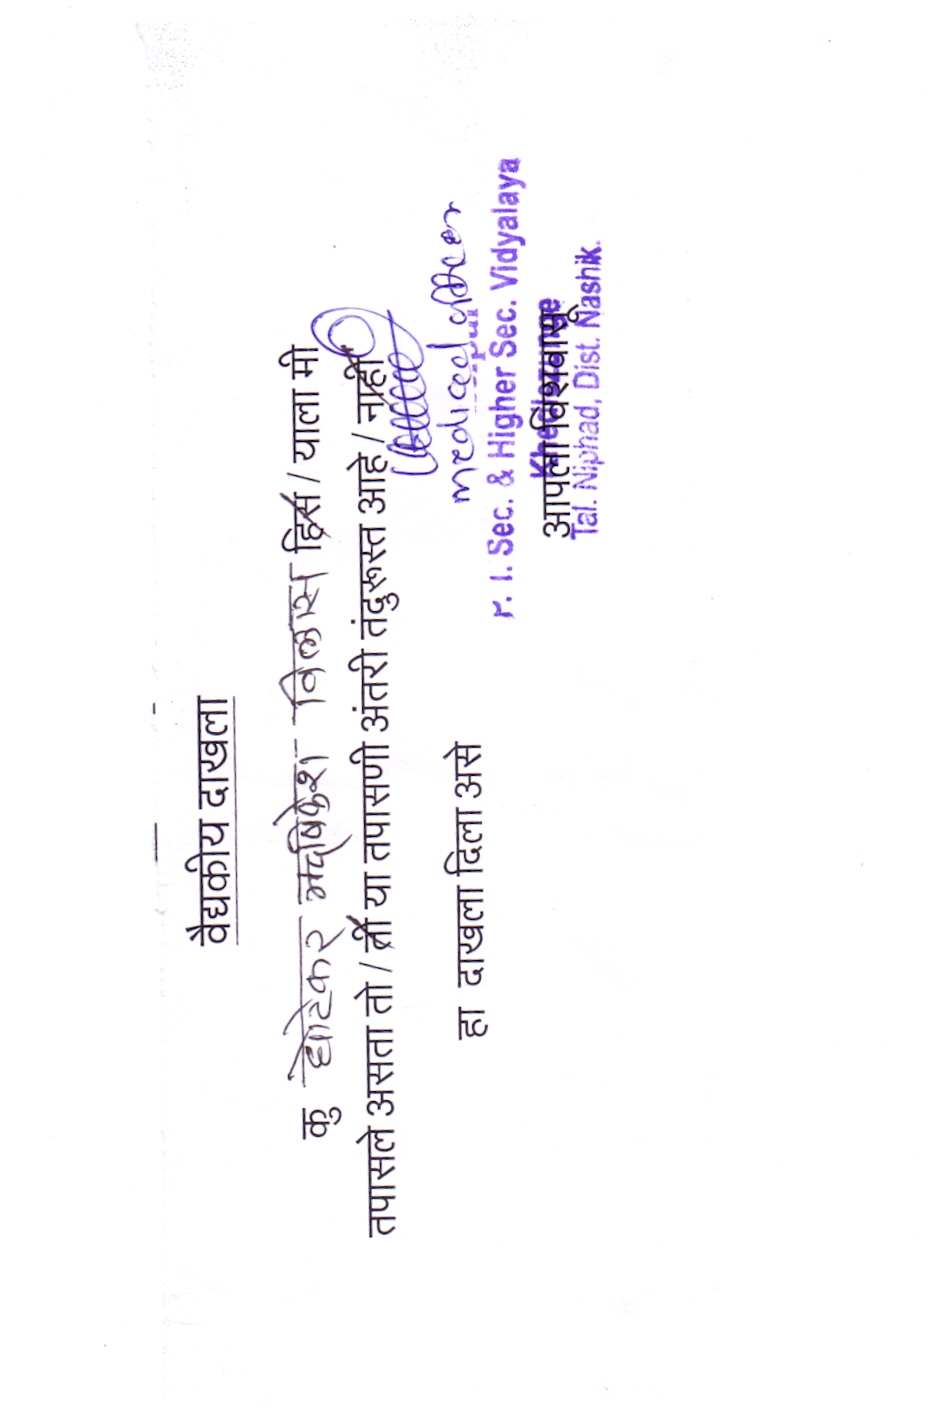 वैद्यकीय दाखला
कु घोटेकर विलास हिस / याला मी
तपासले असता तो / ती या तपासणी अंतरी तंदुरूस्त आहे / नाही
हा दाखला दिला असे
medical officer
P. I. Sec. & Higher Sec. Vidyalaya
आपला विशवासू
Tal. Niphad, Dist. Nashik.